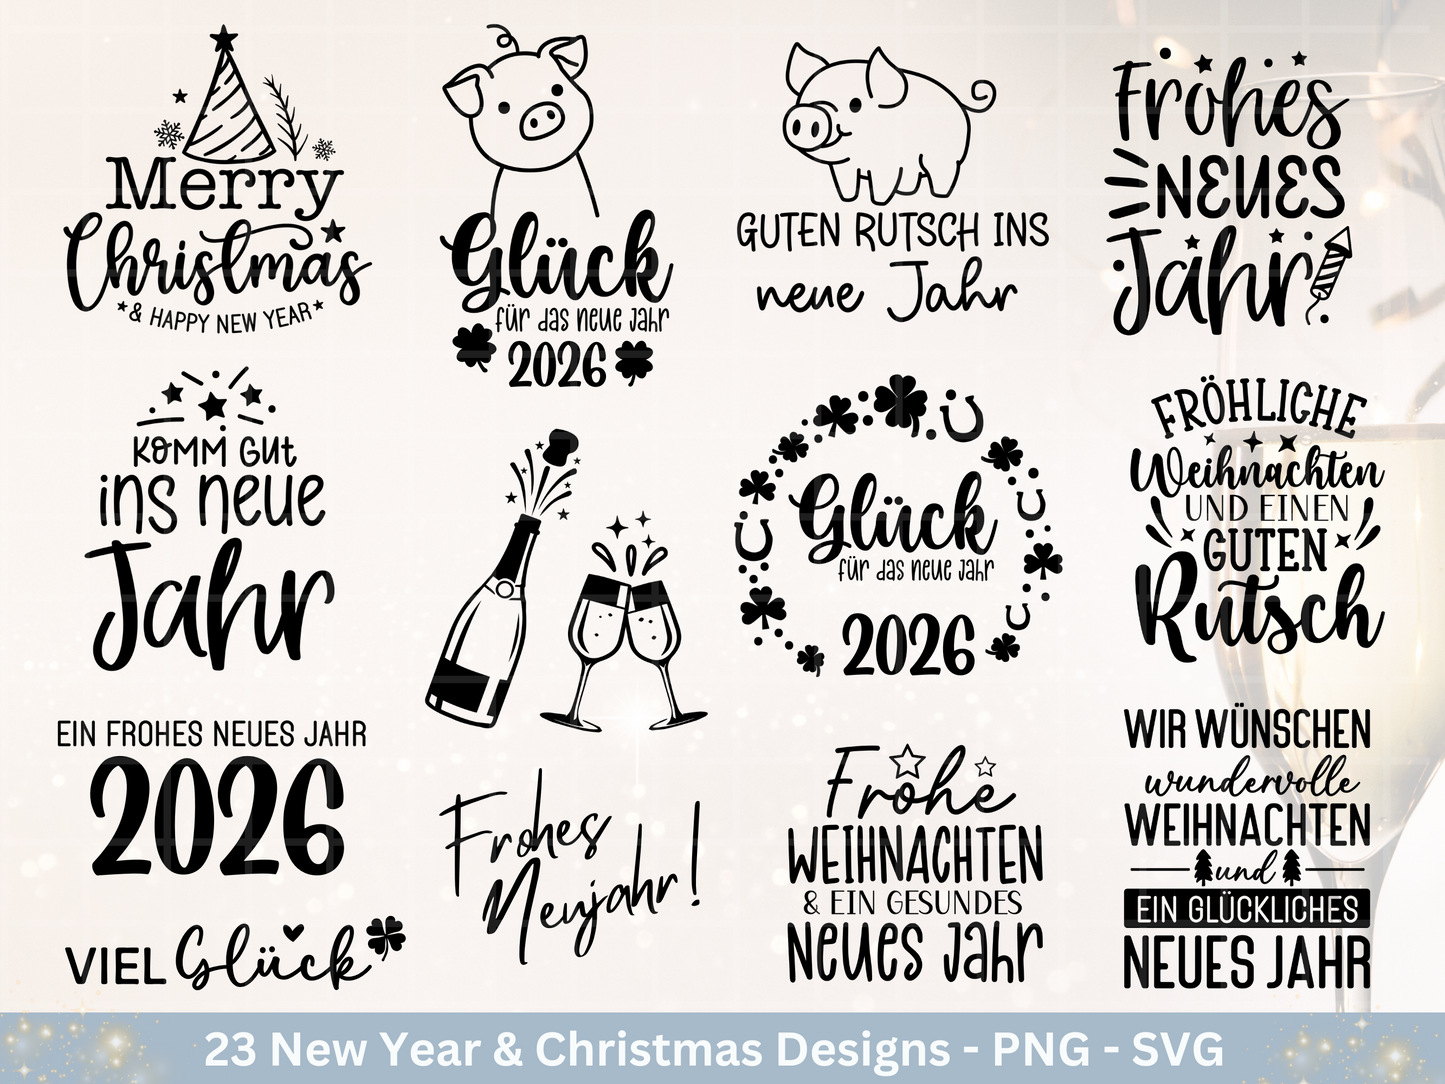 Merry
Christmas
& HAPPY NEW YEAR
Glück
für das neue Jahr
2026
GUTEN RUTSCH INS
neue Jahr
Frohes
NEUES
Jahr
KOMM GUT
ins neue
Jahr
Glück
für das neue Jahr
2026
FRÖHLICHE
Weihnachten
UND EINEN
GUTEN
Rutsch
EIN FROHES NEUES JAHR
2026
VIEL Glück
Frohes
Neujahr!
Frohe
WEIHNACHTEN
& EIN GESUNDES
Neues Jahr
WIR WÜNSCHEN
wundervolle
WEIHNACHTEN
und
EIN GLÜCKLICHES
NEUES JAHR
23 New Year & Christmas Designs - PNG - SVG